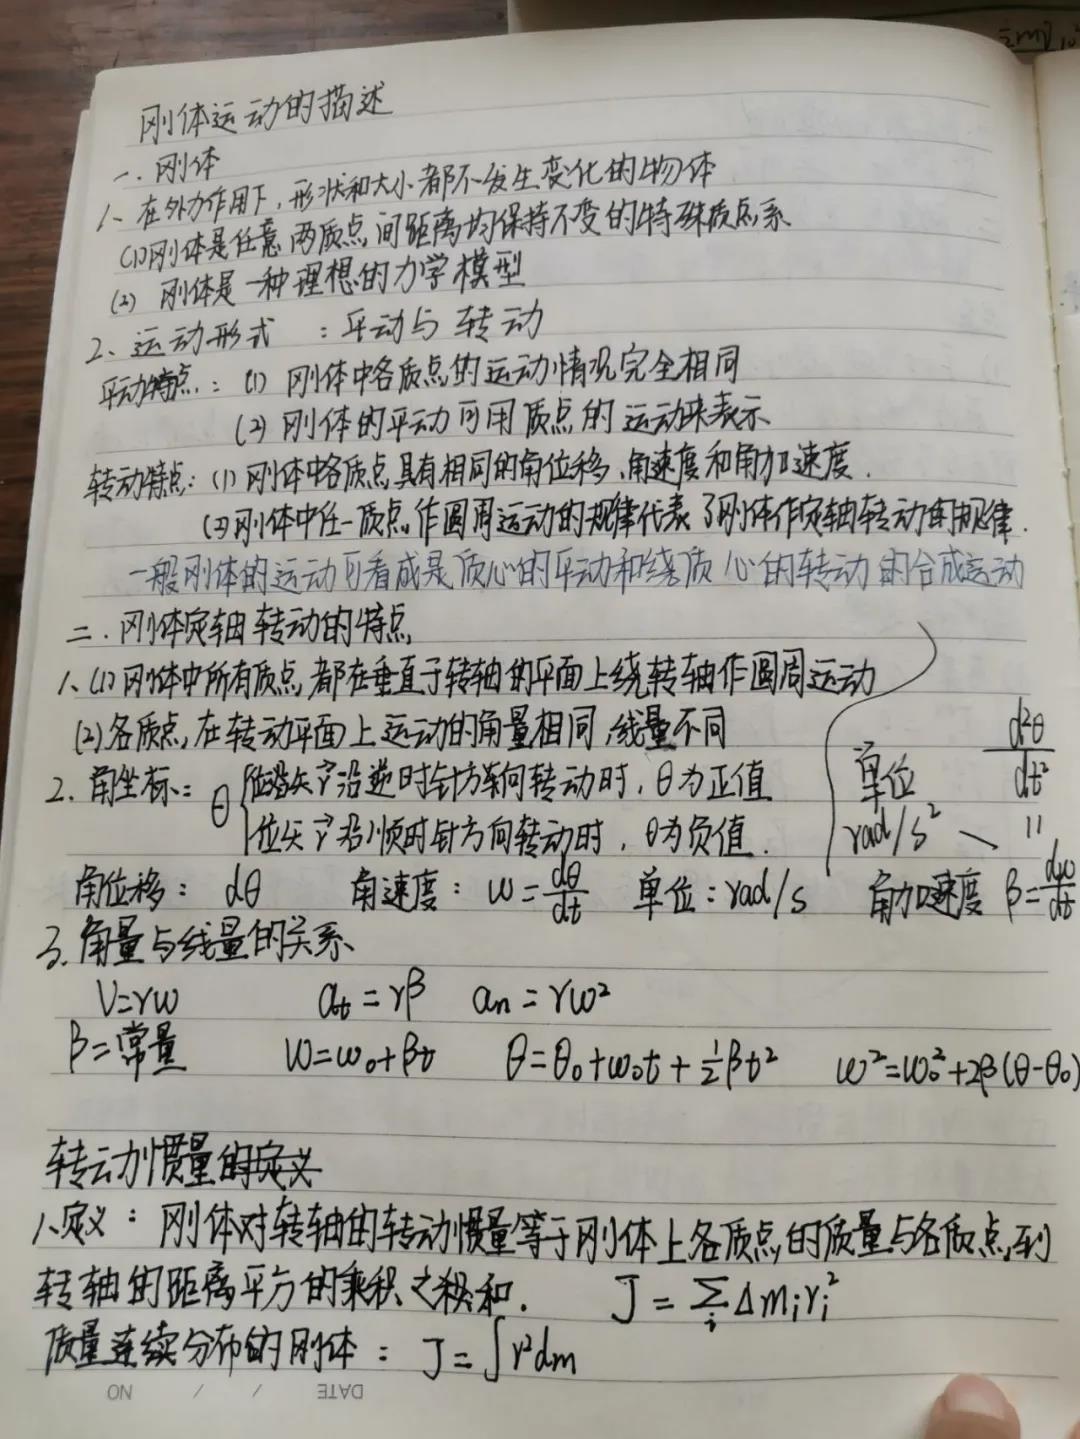 刚体运动的描述
一.刚体
1、在外力作用下,形状和大小都不发生变化的物体
(1)刚体是任意两质点间距离均保持不变的特殊质点系
(2) 刚体是一种理想的力学模型
2、运动形式 :平动与转动
平动特点:(1) 刚体中各质点的运动情况完全相同
(2) 刚体的平动可用质点的运动来表示
转动特点:(1)刚体中各质点具有相同的角位移、角速度和角加速度.
(2)刚体中任一质点作圆周运动的规律代表了刚体作定轴转动的规律.
一般刚体的运动可看成是质心的平动和绕质心的转动的合成运动
二.刚体定轴转动的特点
1、(1)刚体中所有质点都在垂直于转轴的平面上绕转轴作圆周运动
(2)各质点在转动平面上运动的角量相同,线量不同
2.角坐标:θ{位矢r⃗沿逆时针方向转动时,θ为正值
位矢r⃗沿顺时针方向转动时,θ为负值.
单位 d²θ/dt²
rad/s² 〃
角位移:dθ 角速度:ω=dθ/dt 单位:rad/s 角加速度 β=dω/dt
3.角量与线量的关系
V=rω at=rβ an=rω²
β=常量 ω=ω₀+βt θ=θ₀+ω₀t+½βt² ω²=ω₀²+2β(θ-θ₀)
转动惯量的定义
1、定义:刚体对转轴的转动惯量等于刚体上各质点的质量与各质点到
转轴的距离平方的乘积之和. J=∑ᵢΔmᵢrᵢ²
质量连续分布的刚体:J=∫r²dm
NO / / DATE